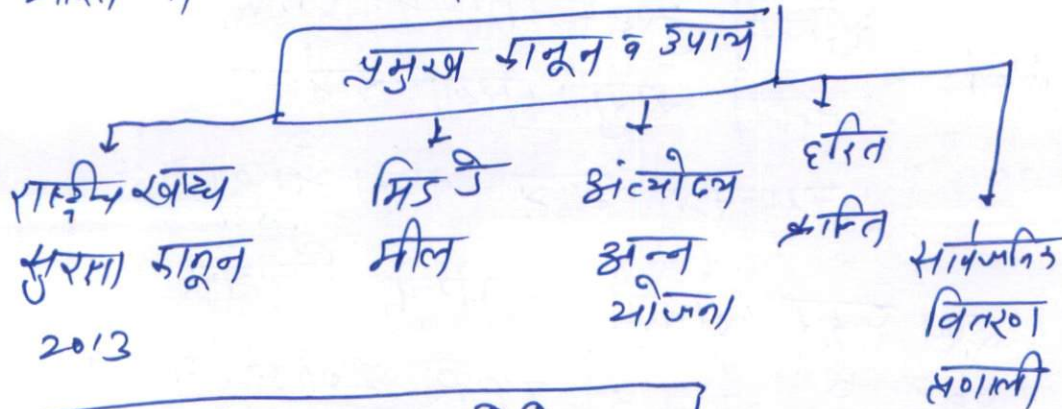 प्रमुख कानून व उपाय
राष्ट्रीय खाद्य
सुरक्षा कानून
2013
मिड डे
मील
अंत्योदय
अन्न
योजना
हरित
क्रान्ति
सार्वजनिक
वितरण
प्रणाली